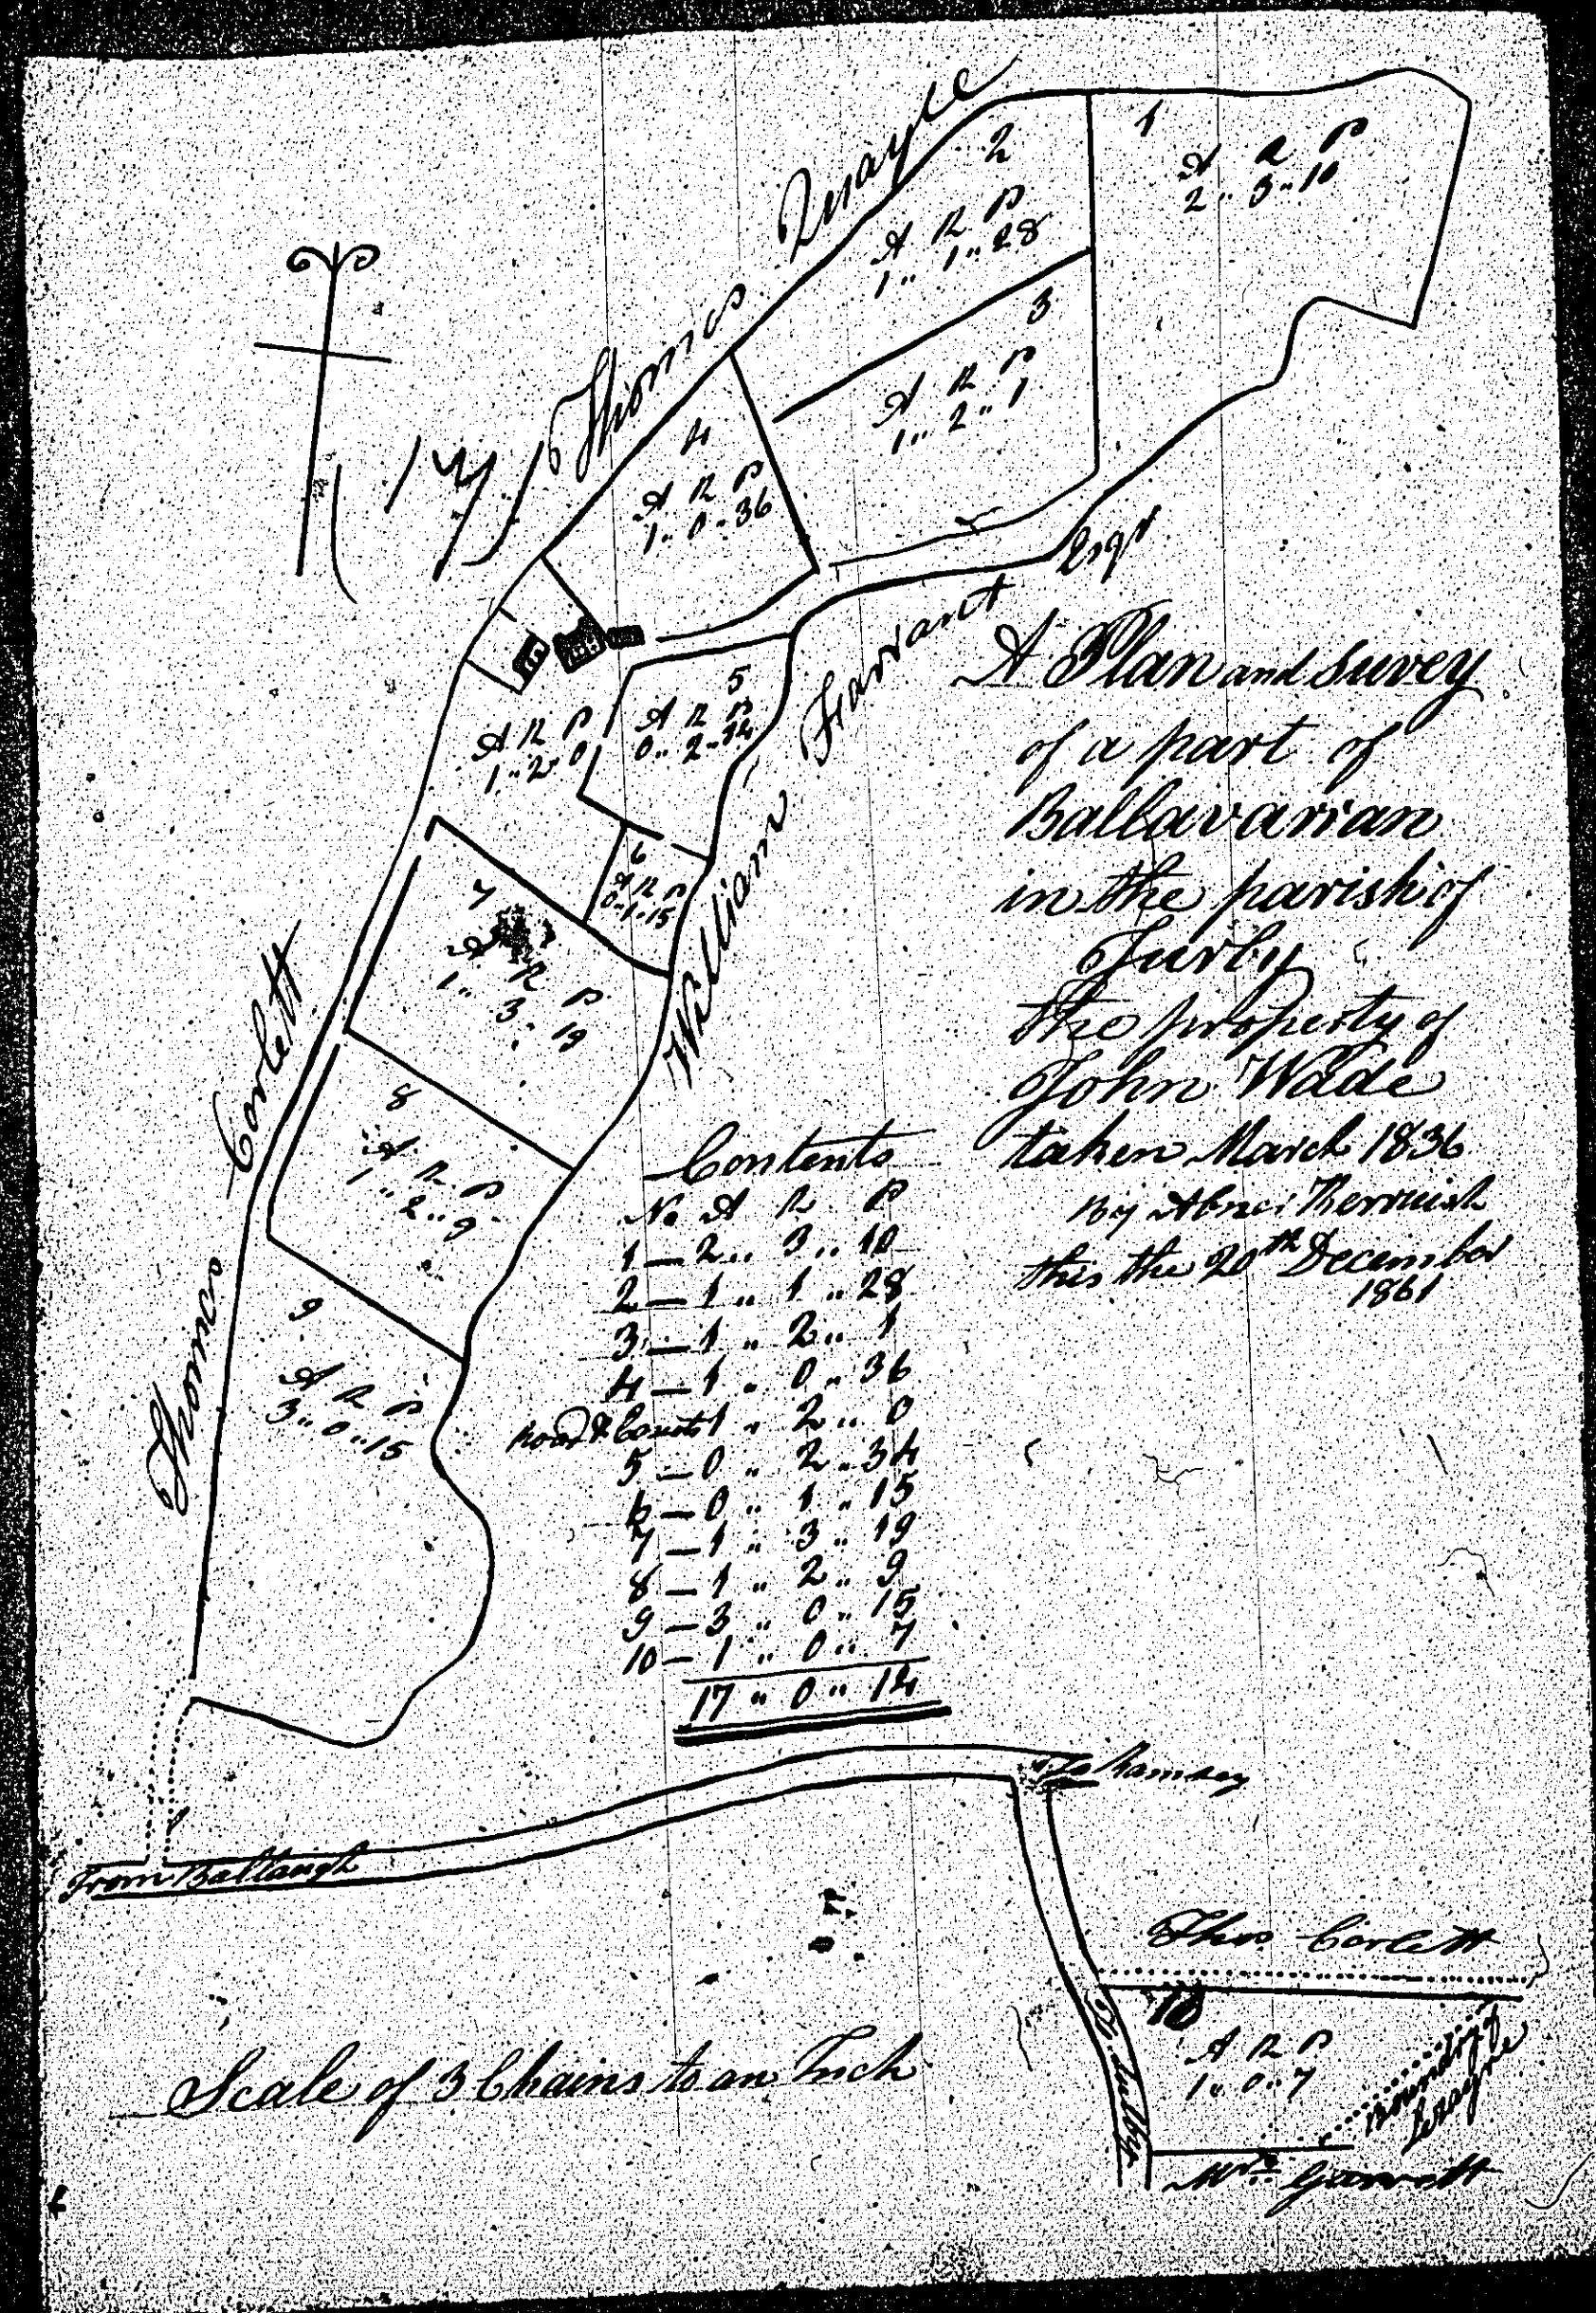 Thomas Quayle
1
A R P
2 .. 3 .. 10
2
A R P
1 .. 1 .. 28
3
A R P
1 .. 2 .. 1
4
A R P
1 .. 0 .. 36
A R P
1 .. 2 .. 0
5
A R P
0 .. 2 .. 34
6
A R P
0 .. 1 .. 15
7
A R P
1 .. 3 .. 19
8
A R P
1 .. 2 .. 9
9
A R P
3 .. 0 .. 15
Thomas Corlett
William Farrant Esqr
A Plan and Suvey
of a part of
Ballavarian
in the parish of
Jurby
the property of
John Wade
taken March 1836
By Kermish
this the 20th December
1861
Contents
No A R P
1 — 2 .. 3 .. 10
2 — 1 .. 1 .. 28
3 — 1 .. 2 .. 1
4 — 1 .. 0 .. 36
Road & 1 .. 2 .. 0
5 — 0 .. 2 .. 34
6 — 0 .. 1 .. 15
7 — 1 .. 3 .. 19
8 — 1 .. 2 .. 9
9 — 3 .. 0 .. 15
10 — 1 .. 0 .. 7
17 .. 0 .. 14
To Ramsey
From Ballaugh
Thos Corlett
10
A R P
1 .. 0 .. 7
To Sulby
Boundry of
Mrs
Scale of 3 Chains to an Inch